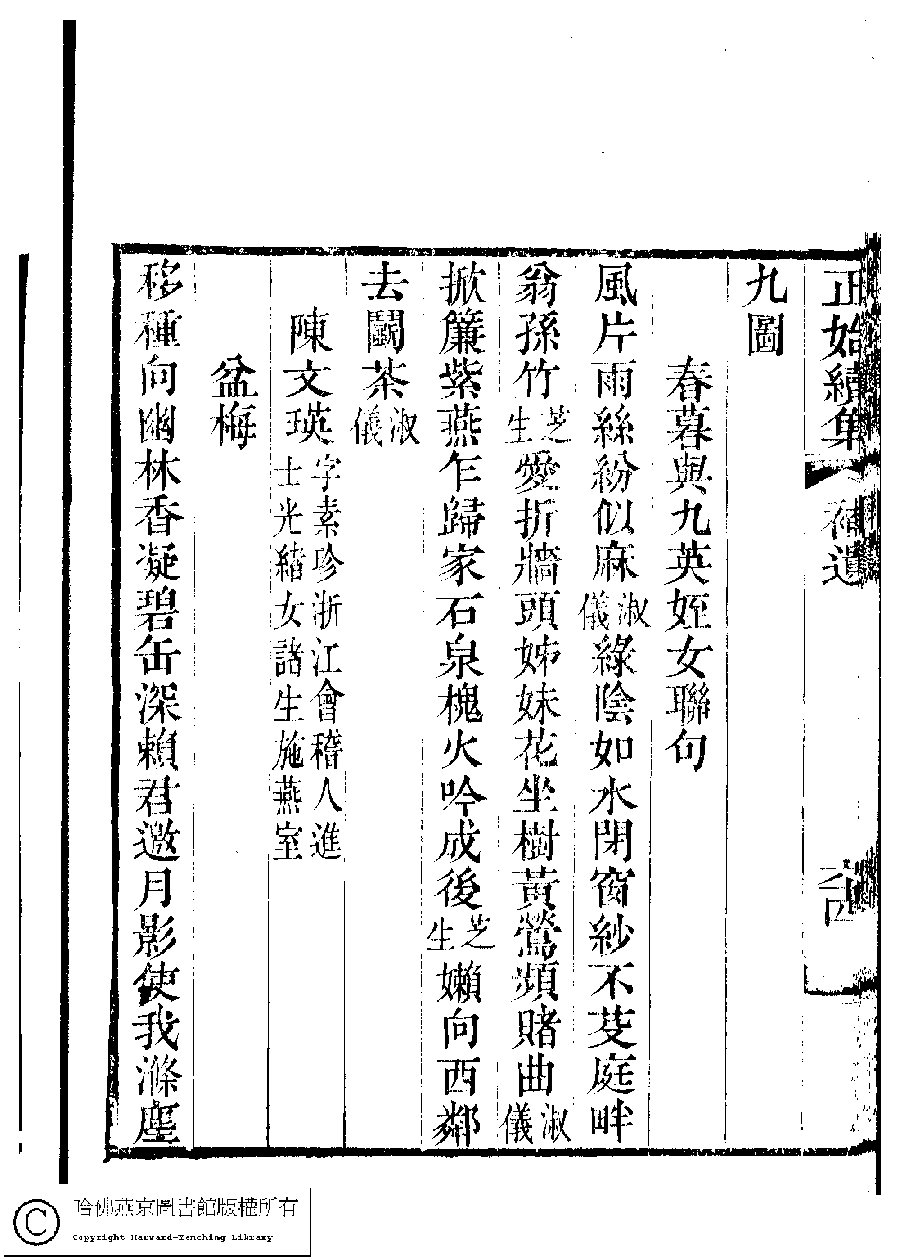 正始續集 補遺
九圖
春暮與九英姪女聯句
風片雨絲紛似麻淑儀綠陰如水閉窗紗不芟庭畔
翁孫竹芝生愛折牆頭姊妹花坐樹黃鶯頻賭曲淑儀
掀簾紫燕乍歸家石泉槐火吟成後芝生嬾向西鄰
去鬬茶淑儀
陳文瑛字素珍浙江會稽人進士光緒女諸生施燕室
盆梅
移種向幽林香凝碧缶深賴君邀月影使我滌塵
哈佛燕京圖書館版權所有
Copyright Harvard-Yenching Library